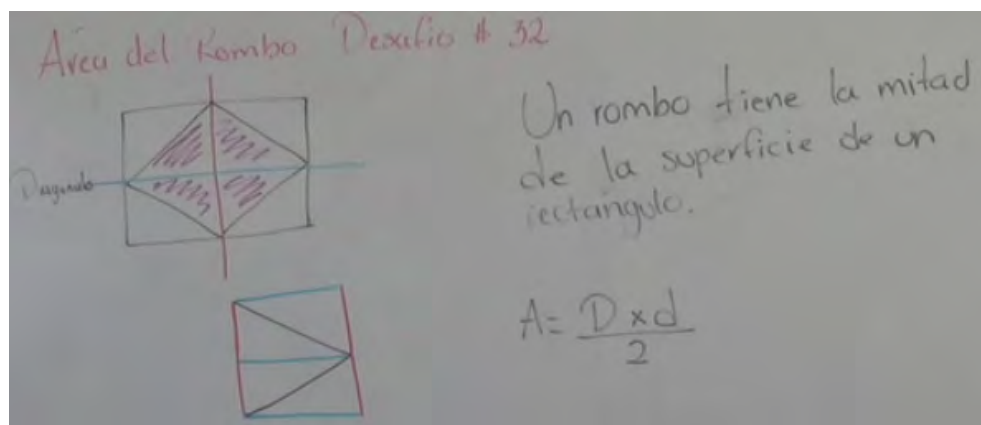 Area del Rombo Desafio # 32
Un rombo tiene la mitad
de la superficie de un
rectángulo.
A= D x d
2